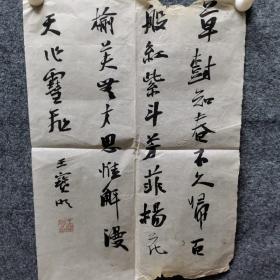 草树知春不久归百
般红紫斗芳菲杨花
榆荚无才思惟解漫
天作雪飞
王宝明